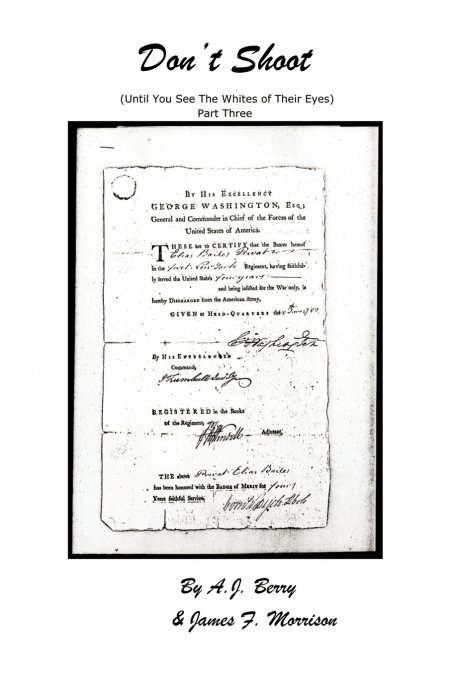 Don't Shoot
(Until You See The Whites of Their Eyes)
Part Three
By His Excellency
GEORGE WASHINGTON, Esq;
General and Commander in Chief of the Forces of the
United States of America.
THESE are to CERTIFY that the Bearer hereof
Elias Bailes Privat
in the first New York Regiment, having faithful-
ly served the United States four years
and being inlisted for the War only, is
hereby DISCHARGED from the American Army.
GIVEN at HEAD-QUARTERS the June
G Washington
By His EXCELLENCY'S
Command,
J Trumbull Jun
REGISTERED in the Books
of the Regiment,
Adjutant,
THE above Privat Elias Bailes
has been honored with the BADGE of MERIT for four
Years faithful Service.
By A.J. Berry
& James F. Morrison